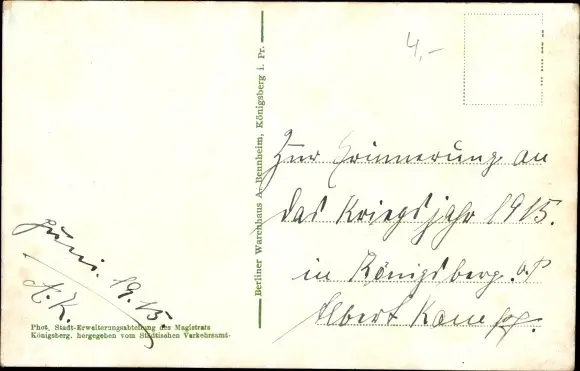 4,-
Zur Erinnerung an
das Kriegsjahr 1915.
in Königsberg. o.P
Albert
Juni. 19.15
A.K.
Berliner Warenhaus A. Bennheim, Königsberg i. Pr.
Phot. Stadt-Erweiterungsabteilung des Magistrats
Königsberg, hergegeben vom Städtischen Verkehrsamt.